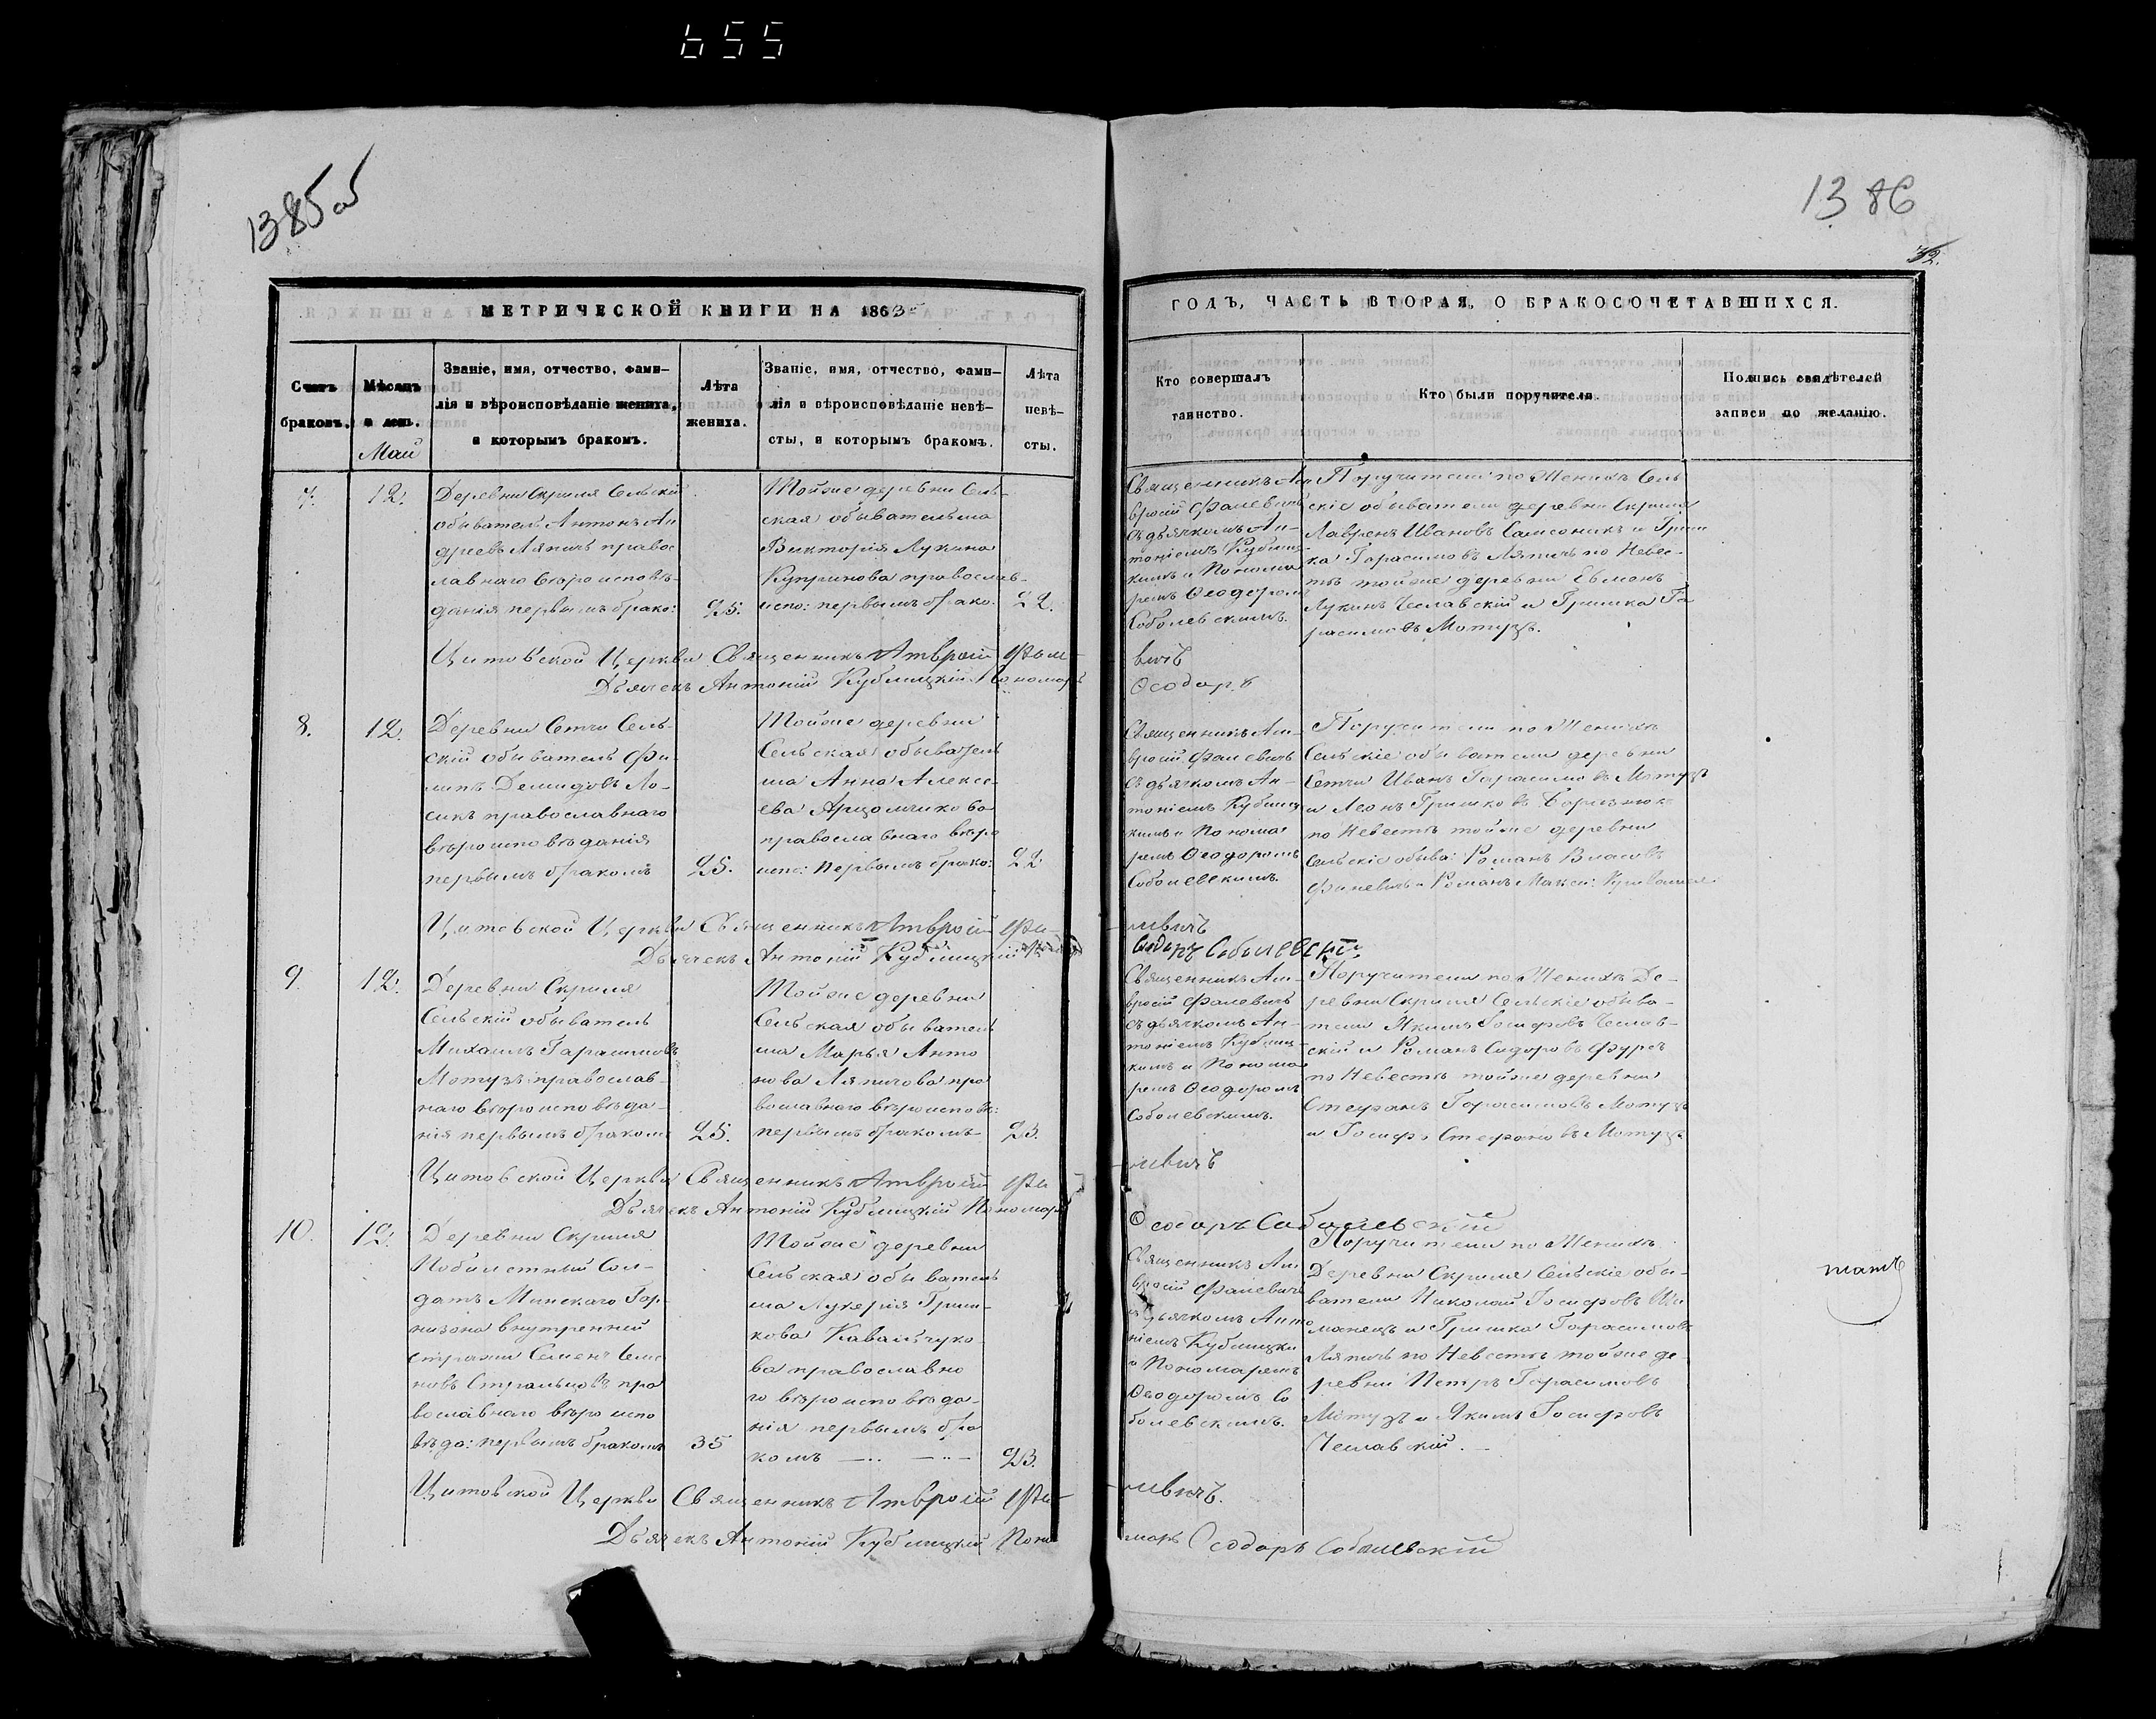 655
1385об
1386
72.
МЕТРИЧЕСКОЙ КНИГИ НА 1863
ГОДЪ, ЧАСТЬ ВТОРАЯ, О БРАКОСОЧЕТАВШИХСЯ.
Счетъ
браковъ.
Мѣсяцъ
и день.
Май
Званіе, имя, отчество, фами-
лія и вѣроисповѣданіе жениха,
и которымъ бракомъ.
Лѣта
жениха.
Званіе, имя, отчество, фами-
лія и вѣроисповѣданіе невѣ-
сты, и которымъ бракомъ.
Лѣта
невѣ-
сты.
Кто совершалъ
таинство.
Кто были поручители.
Подпись свидѣтелей
записи по желанію.
7.
12.
Деревни Скриля Сельскій
обыватель Антонъ Ан
дреевъ Ляпичъ правос
лавнаго вѣроисповѣ-
данія первымъ брако:
25.
Тойже деревни Сель-
ская обывательша
Викторія Лукина
Купринова православ-
испо: первымъ брако.
22.
Священникъ Ам
вросій Фалевичъ
съ дьячкомъ Ан-
тоніемъ Кублиц-
кимъ и Понома
ремъ Ѳеодоромъ
Соболевскимъ.
Поручители по Женихѣ Сель
скіе обыватели деревни Скриля
Лаврѣнъ Ивановъ Самсоникъ и Гриш
ка Гарасимовъ Ляпичъ по Невес-
тѣ тойже деревни
Лукинъ Чеславскій и Гришка Га
расимовъ Мотузъ.
Цитовской Церкви Священникъ Амвросій Фале
вичъ
Дьячекъ Антоній Кублицкій Пономарь
Ѳеодоръ
8.
12.
Деревни Сетчи Сель-
скій обыватель Фи-
липъ Демидовъ Ло-
сикъ православнаго
вѣроисповѣданія
первымъ бракомъ
25.
Тойже деревни
Сельская обыватель
ша Анна Алексе-
ева
православнаго вѣро
испо: первымъ брако:
22
Священникъ Ам-
вросій Фалевичъ
съ дьячкомъ Ан-
тоніемъ Кублиц
кимъ и Понома
ремъ Ѳеодоромъ
Соболевскимъ.
Поручители по Женихѣ
Сельскіе обыватели деревни
Сетчи Иванъ Гарасимовъ Мотузъ
и Леонъ Гришковъ
по Невестѣ тойже деревни
Сельскіе обыва: Романъ Власовъ
и Романъ Макси:
Цитовской Церкви Священникъ Амвросій Фа-
левичъ
Дьячекъ Антоній Кублицкій
Соболевскій
9.
12.
Деревни Скриля
Сельскій обыватель
Михаилъ Гарасимовъ
Мотузъ православ-
наго вѣроисповѣда-
нія первымъ бракомъ
25.
Тойже деревни
Сельская обыватель
ша Марья Анто
нова Ляпичова пра
вославнаго вѣроисповѣ:
первымъ бракомъ
23.
Священникъ Ам-
вросій Фалевичъ
съ дьячкомъ Ан-
тоніемъ Кублиц-
кимъ и Понома
ремъ Ѳеодоромъ
Соболевскимъ.
Поручители по Женихѣ Де-
ревни Скриля Сельскіе обыва-
тели Якимъ Іосифовъ Чеслав-
скій и Романъ Сидоровъ Фурсъ
по Невестѣ тойже деревни
Стефанъ Гарасимовъ Мотузъ
и Іосифъ Стефановъ Мотузъ
Цитовской Церкви Священникъ Амвросій Фа
левичъ
Дьячекъ Антоній Кублицкій Пономарь
Ѳеодоръ Соболевскій
10.
12.
Деревни Скриля
Побилетный Сол-
датъ Минскаго Гар-
низона внутренней
стражи Семенъ Семе
новъ Стральцовъ пра
вославнаго вѣроиспо
вѣда: первымъ бракомъ
35
Тойже деревни
Сельская обыватель
ша Лукерія Гриш-
кова Ковальчуко-
ва православно
го вѣроисповѣда-
нія первымъ бра
комъ
23.
Священникъ Ам
вросій Фалевичъ
съ дьячкомъ Анто
ніемъ Кублицки
и Пономаремъ
Ѳеодоромъ Со
болевскимъ.
Поручители по Женихѣ
Деревни Скриля Сельскіе обы-
ватели Николай Іосифовъ Ши
манецъ и Гришка Гарасимовъ
Ляпичъ по Невестѣ тойже де-
ревни Петръ Гарасимовъ
Мотузъ и Якимъ Іосифовъ
Чеславскій.
Цитовской Церкви Священникъ Амвросій Фа-
левичъ.
Дьячекъ Антоній Кублицкій Поно
марь Ѳеодоръ Соболевскій